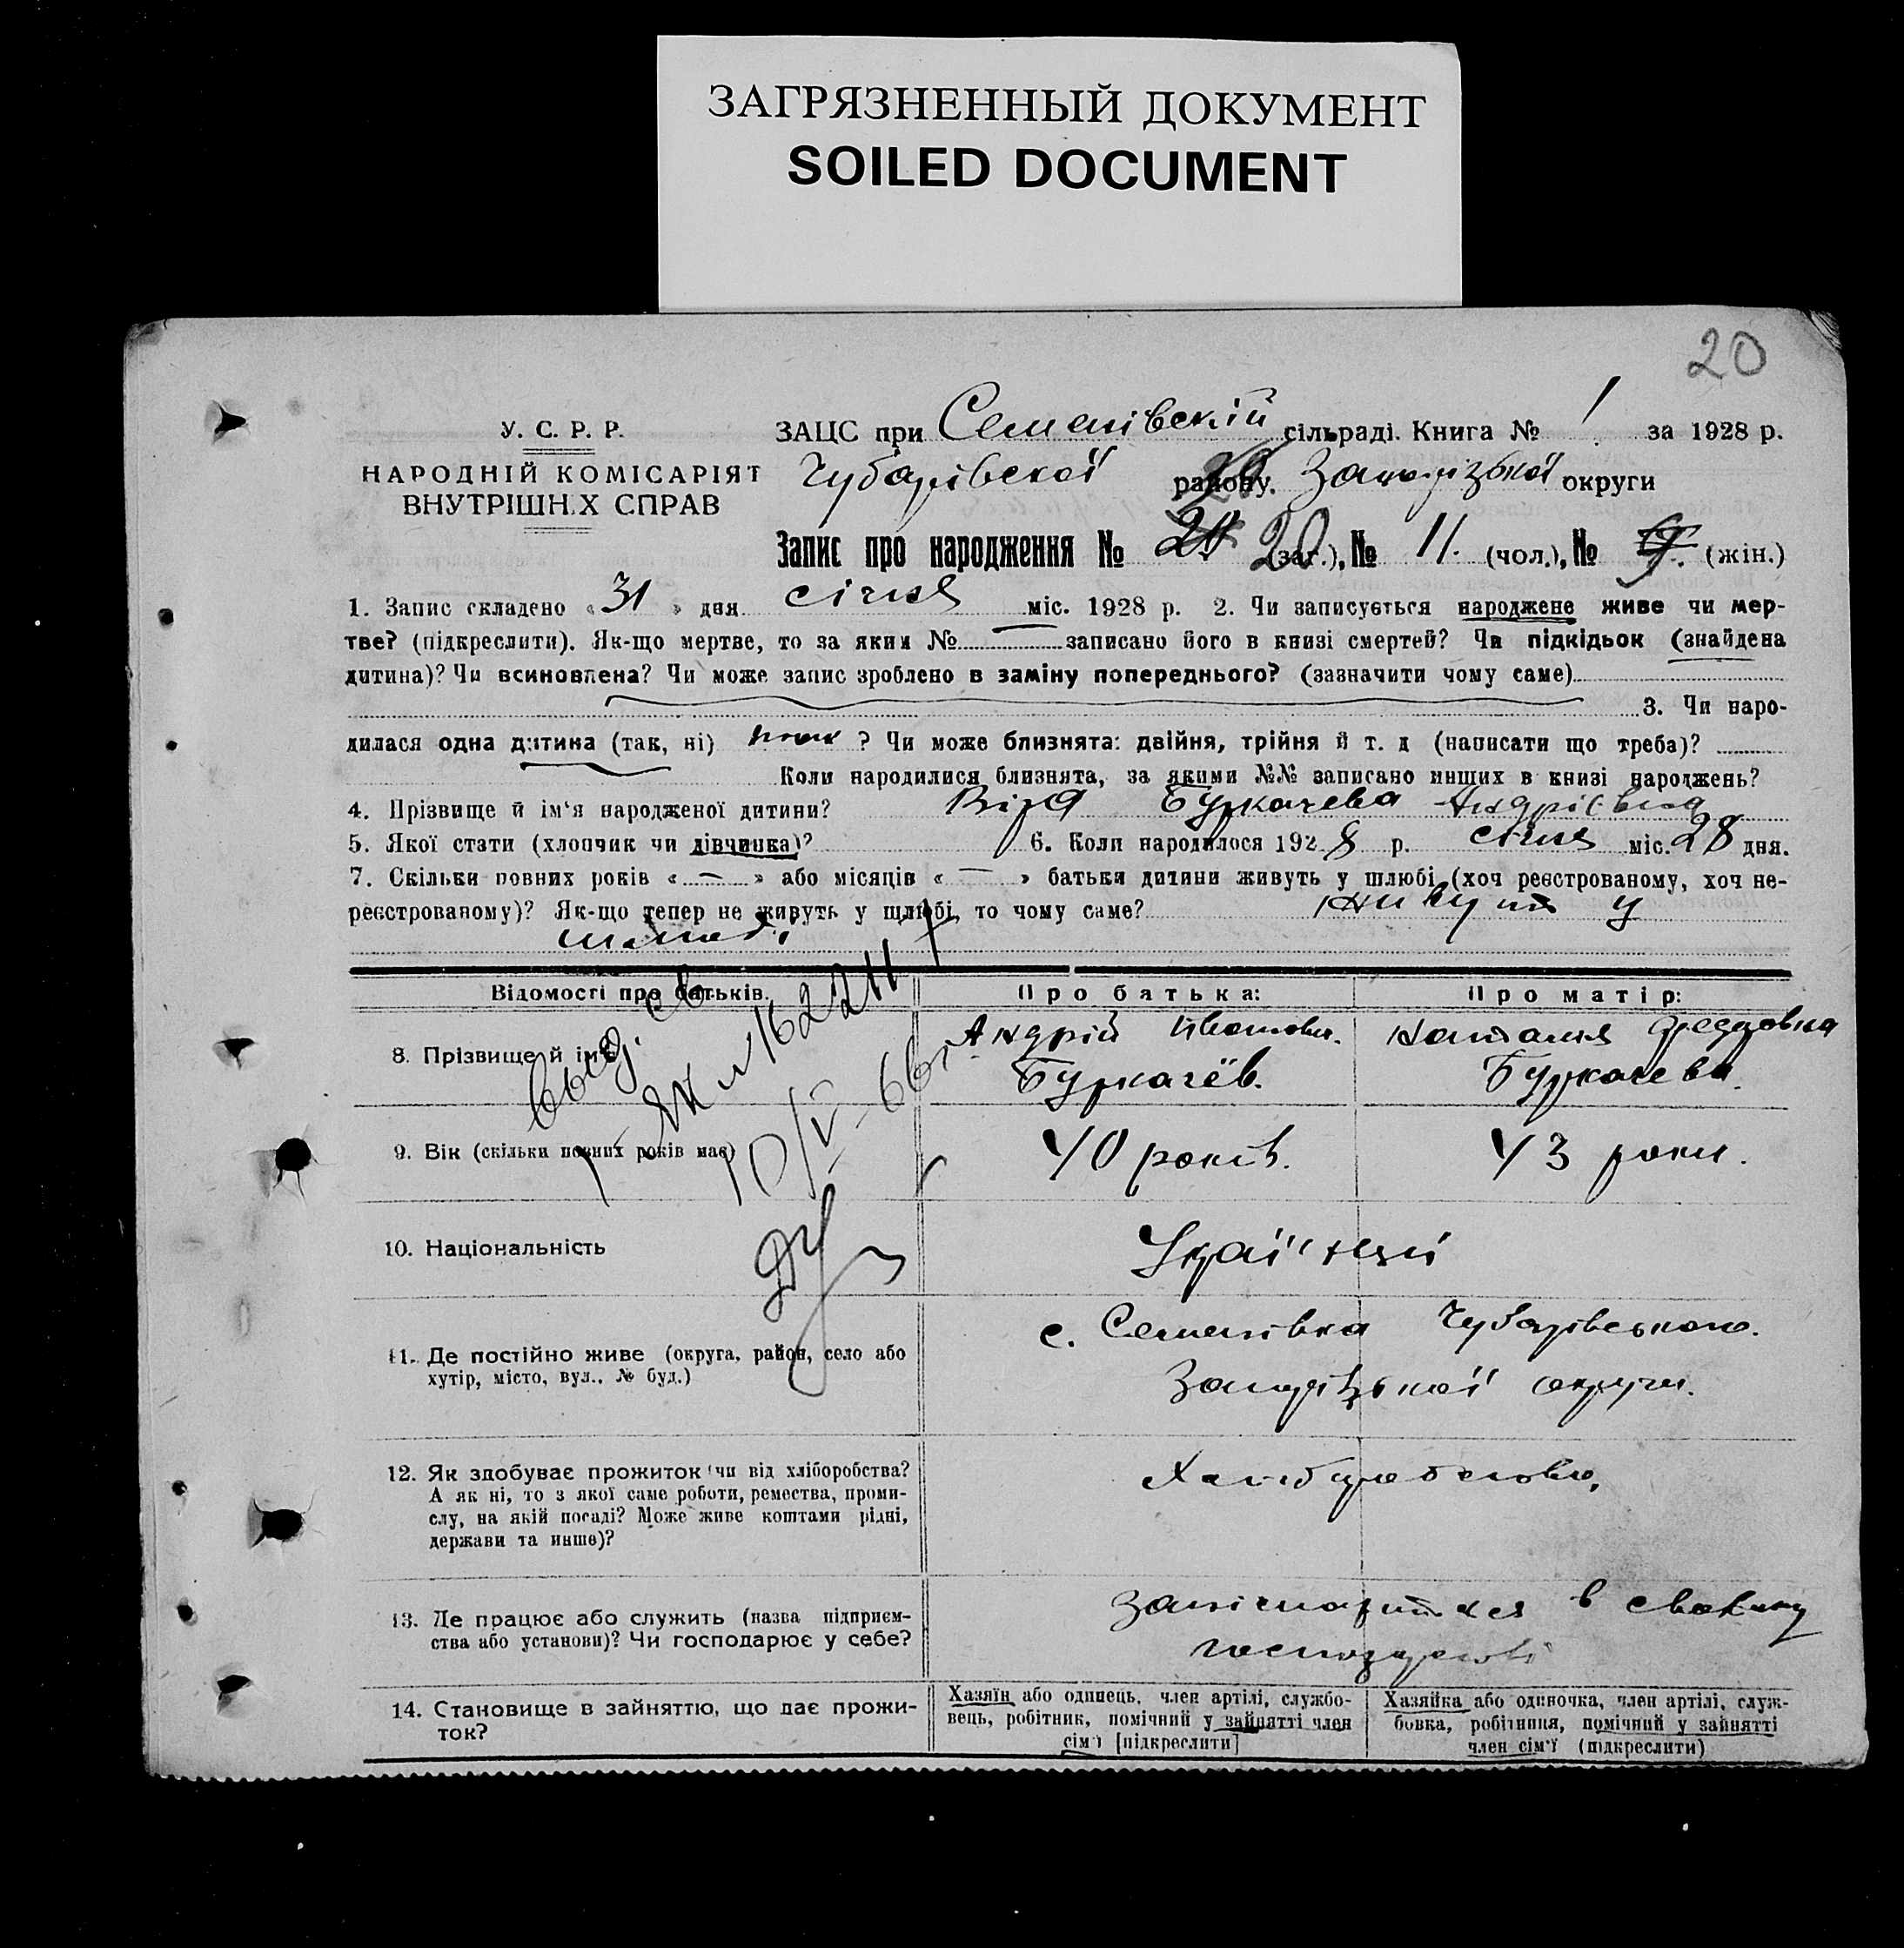 ЗАГРЯЗНЕННЫЙ ДОКУМЕНТ
SOILED DOCUMENT
20
У. С. Р. Р.
НАРОДНІЙ КОМІСАРІЯТ
ВНУТРІШН.Х СПРАВ
ЗАЦС при Семенівскій сільраді. Книга № 1 за 1928 р.
Чубарівскої району. Запорізької округи
Запис про народження № 20 (заг.), № 11. (чол.), № 9. (жін.)
1. Запис складено « 31 » дня січня міс. 1928 р. 2. Чи записується народжене живе чи мер-
тве? (підкреслити). Як-що мертве, то за яким № записано його в книзі смертей? Чи підкідьок (знайдена
дитина)? Чи всиновлена? Чи може запис зроблено в заміну попереднього? (зазначити чому саме)
3. Чи наро-
дилася одна дитина (так, ні) так ? Чи може близнята: двійня, трійня й т. д (написати що треба)?
Коли народилися близнята, за якими №№ записано инших в книзі народжень?
4. Прізвище й ім'я народженої дитини? Віра Буркачева Андріївна
5. Якої стати (хлопчик чи дівчинка)? 6. Коли народилося 1928 р. січня міс. 28 дня.
7. Скільки повних років « — » або місяців « — » батьки дитини живуть у шлюбі (хоч реєстрованому, хоч не-
реєстрованому)? Як-що тепер не живуть у шлюбі, то чому саме? живуть у
шлюбі
Відомості про батьків. Про батька: Про матір:
8. Прізвище й ім'я Андрій Іванович. Наталия Федоровна
Буркачёв. Буркачева.
выд. св.
ЯК № 162211
10/V-66г
9. Вік (скільки повних років має) 40 років. 43 роки.
10. Національність Украї'нці
11. Де постійно живе (округа, район, село або
хутір, місто, вул., № буд.)
с. Семенівка Чубарівського.
Запорізької округи.
12. Як здобуває прожиток чи від хліборобства?
А як ні, то з якої саме роботи, ремества, проми-
слу, на якій посаді? Може живе коштами рідні,
держави та инше)?
Хліборобством,
13. Де працює або служить (назва підприєм-
ства або установи)? Чи господарює у себе?
в своему
господарстві
14. Становище в зайняттю, що дає прожи-
ток?
Хазяїн або одинець, член артілі, службо-
вець, робітник, помічний у зайнятті член
сім'ї [підкреслити]
Хазяйка або одиночка, член артілі, служ-
бовка, робітниця, помічний у зайнятті
член сім'ї (підкреслити)